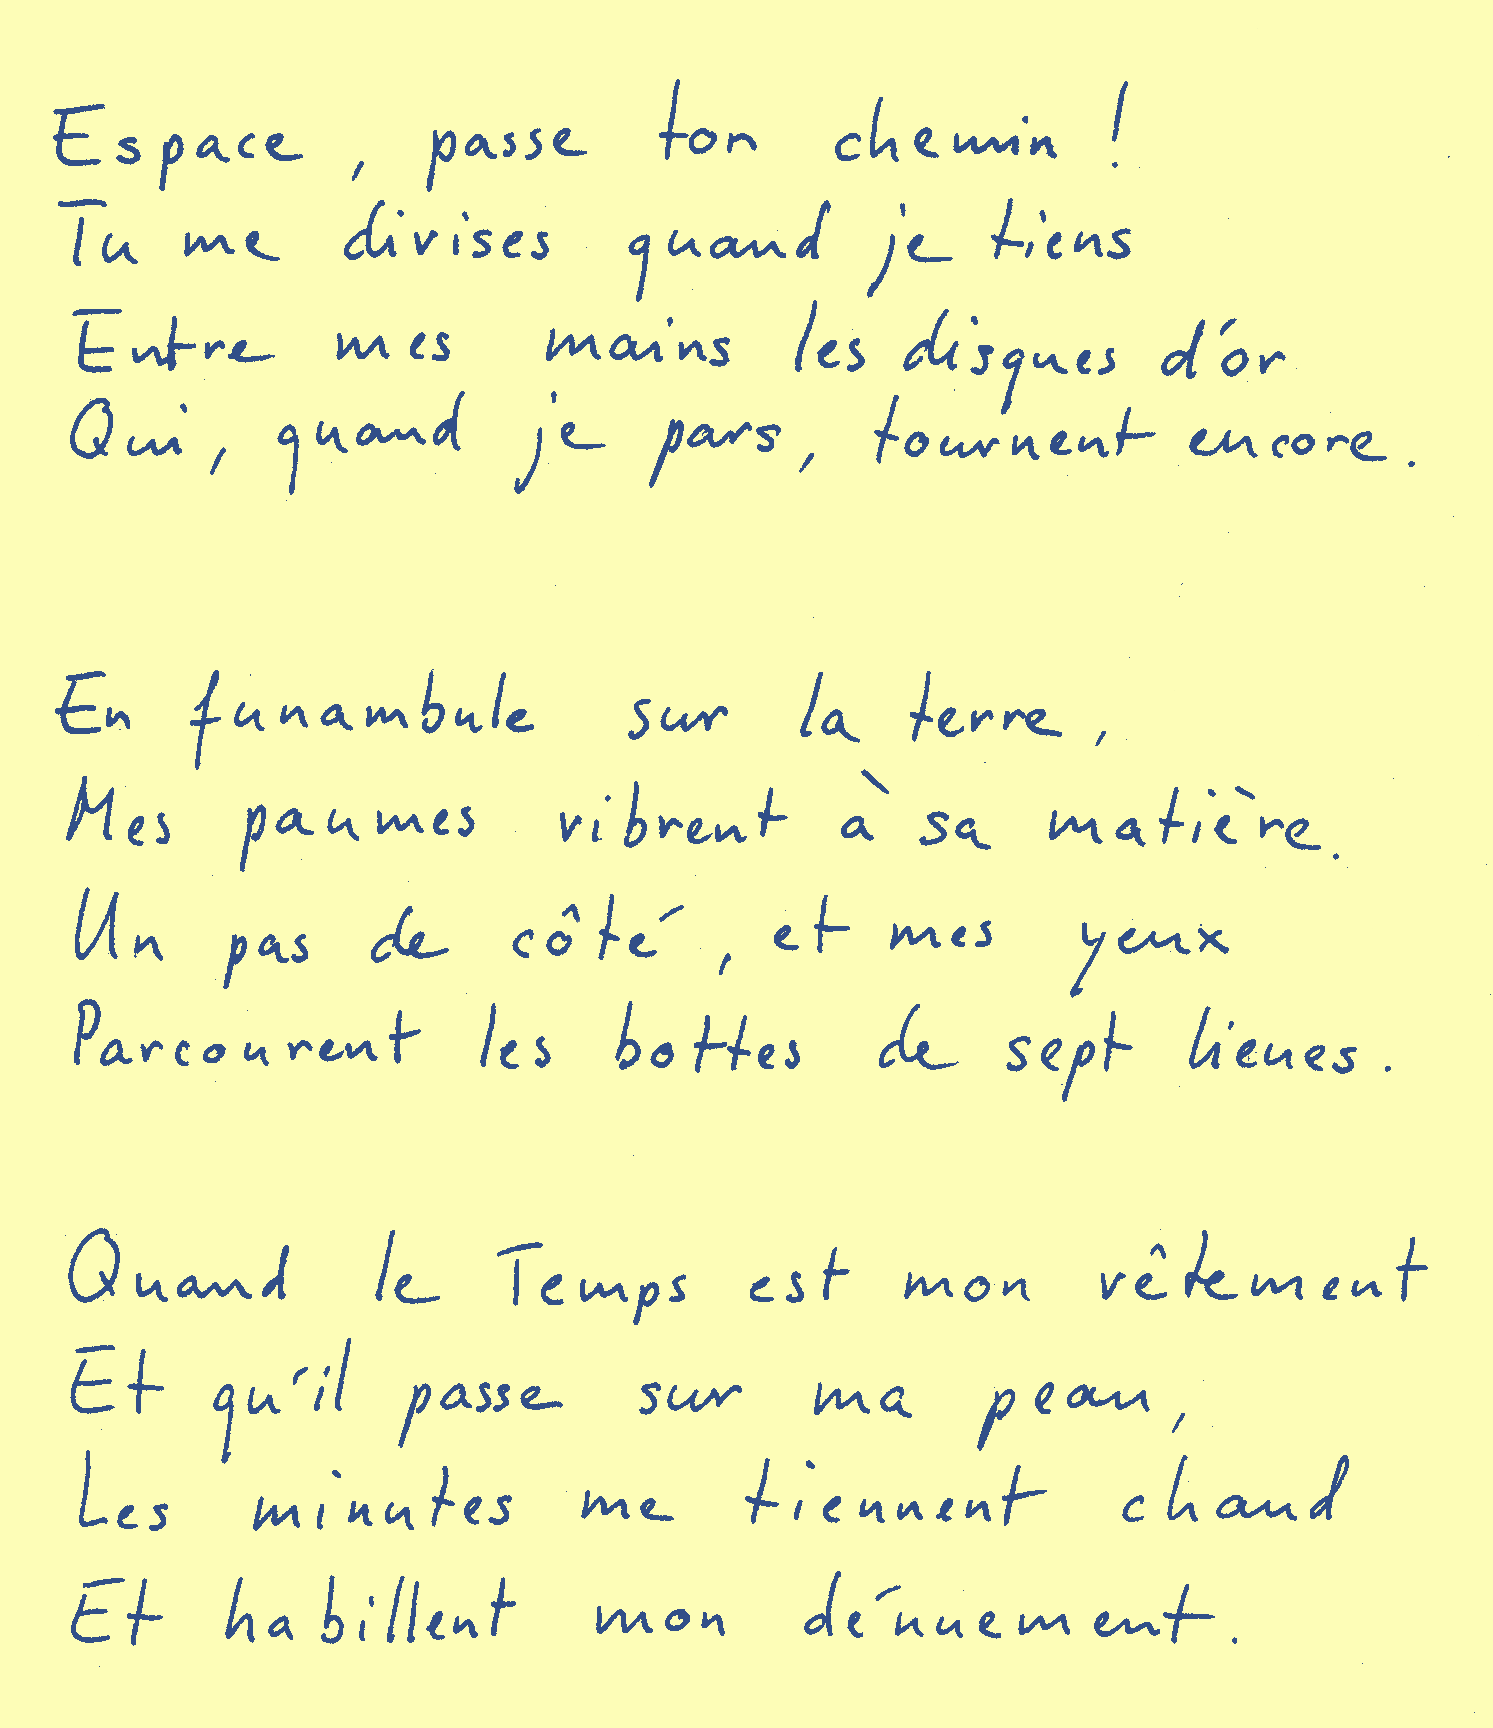 Espace, passe ton chemin !
Tu me divises quand je tiens
Entre mes mains les disques d'or
Qui, quand je pars, tournent encore.
En funambule sur la terre,
Mes paumes vibrent à sa matière.
Un pas de côté, et mes yeux
Parcourent les bottes de sept lieues.
Quand le Temps est mon vêtement
Et qu'il passe sur ma peau,
Les minutes me tiennent chaud
Et habillent mon dénuement.